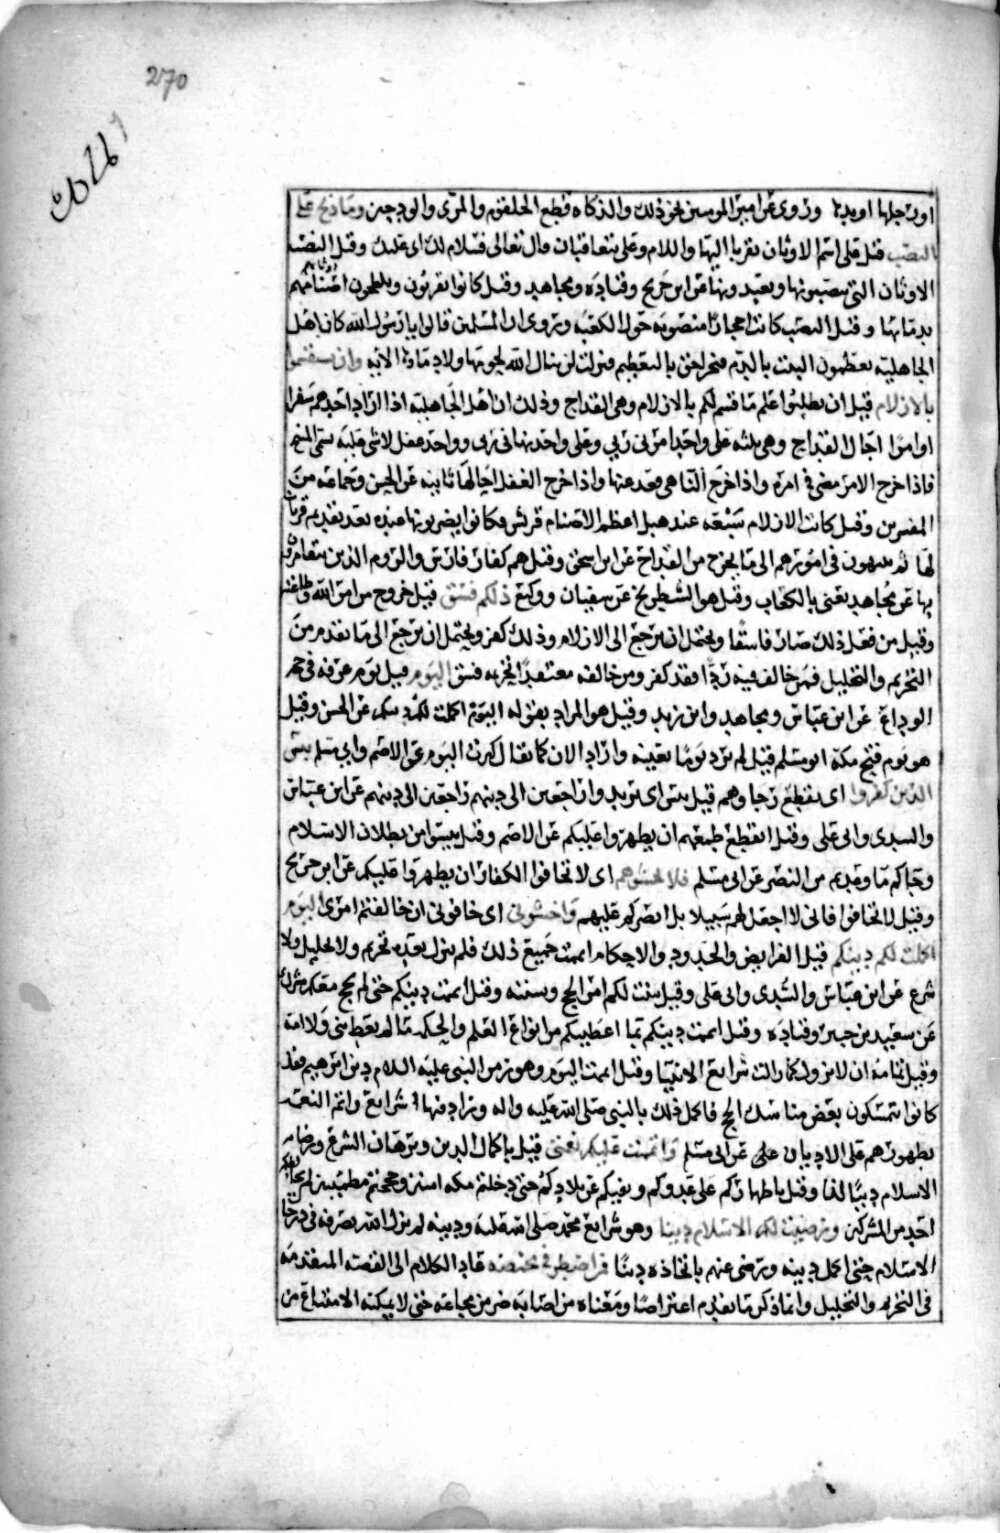 270
المائدة
او رجلها او يدها وروى عن امير المومنين نحو ذلك والذكاه قطع الحلقوم والمرى والودجين وما ذبح على
النصب قيل على اسم الاوثان تقربا اليها واللام وعلى يتعاقبان قال تعالى فسلام لك اى عليك وقيل النصب
الاوثان التى ينصبونها ويعبدونها عن ابن جريح وقتاده ومجاهد وقيل كانوا يقربون ويلطحون اصنامهم
بدمايها وقيل النصب كانت احجارا منصوبه حول الكعبه وروى ان المسلمين قالوا يا رسول الله كان اهل
الجاهليه يعظمون البيت بالدم فنحن احق بالتعظيم فنزلت لن ينال الله لحومها ولا دماوها الايه وان تستقسموا
بالازلام قيل ان يطلبوا علم ما قسم لكم بالازلام وهى القداح وذلك ان اهل الجاهليه اذا اراد احدهم سفرا
او امرا اجال القداح وهى ثلثه على واحد امرنى ربى وعلى واحد نهانى ربى وواحد غفل لا شى عليه يسمى المنيح
فاذا خرج الامر مضى فى امره واذا خرج الناهى قعد عنها واذا خرج الغفل اجالها ثانيه عن الحسن وجماعه من
المفسرين وقيل كانت الازلام سبعه عند هبل اعظم الاصنام قريش وكانوا يضربونها عنده بعد تقديم قربان
لها ثم ينتهون فى امورهم الى ما يخرج من القداح عن ابن اسحق وقيل هم كفار فارس والروم الذين يتقامرون
بها عن مجاهد يعنى بالكعاب وقيل هو الشطرنج عن سفيان ووكيع ذلكم فسق قيل خروج من امر الله وطاعته
وقيل من فعل ذلك صار فاسقا ويحتمل ان يرجع الى الازلام وذلك كفر ويحتمل ان يرجع الى ما تقدم من
التحريم والتحليل فمن خالف فيه ردا فقد كفر ومن خالفه معتقدا لتحريمه فسق اليوم قيل يوم عرفه فى حجه
الوداع عن ابن عباس ومجاهد وابن زيد وقيل هو المراد بقوله اليوم اكملت لكم دينكم عن الحسن وقيل
هو يوم فتح مكه ابو مسلم قيل لم يرد يوما بعينه واراد الان كما يقال كبرت اليوم عن الاصم وابى مسلم يئس
الذين كفروا اى يقطع رجاوهم قيل يئس اى تريدوا راجعين الى دينهم راجعين الى دينهم عن ابن عباس
والسدى وابى على وقيل انقطع طمعهم ان يظهروا عليكم عن الاصم وقيل يئسوا من بطلان الاسلام
وجاكم ما وعدتم من النصر عن ابى مسلم فلا تخشوهم اى لا تخافوا الكفار ان يظهروا عليكم عن ابن جريح
وقيل لا تخافوا فانى لا اجعل لهم سبيلا بل انصركم عليهم واخشونى اى خافونى ان خالفتم امرى اليوم
اكملت لكم دينكم قيل الفرايض والحدود والاحكام اتممت جميع ذلك فلم ينزل بعده تحريم ولا تحليل ولا
شرع عن ابن عباس والسدى وابى على وقيل بينت لكم امر الحج وسنته وقيل اتممت دينكم حتى لم يحج معكم مشرك
عن سعيد بن جبير وقتاده وقيل اتممت دينكم بما اعطيتكم من انواع العلم والحكمه ما لم يعط نبى ولا امه
وقيل تمامه ان لا يزول كما زالت شرايع الانبيا وقيل اتممت اليوم وهو زمن النبى عليه السلام دين ابرهيم فقد
كانوا يتمسكون بعض مناسك الحج فاكمل ذلك بالنبى صلى الله عليه واله وزاد فيها شرايع واتم النعمه
بظهورهم على الاديان على عن ابى مسلم واتممت عليكم نعمتى قيل باكمال الدين وبرهان الشرع ورضا
الاسلام دينا لنا وقيل باظهاركم على عدوكم ونفيكم عن بلادكم حتى دخلتم مكه امنين وحججتم مطمئنين لم يخالطكم
احد من المشركين ورضيت لكم الاسلام دينا وهو شرايع محمد صلى الله عليه ودينه لم يزل الله يصرفه فى درجات
الاسلام حتى اكمل دينه ورضى عنهم باتخاذه دينا فمن اضطر فى مخمصه عاد الكلام الى القصه المتقدمه
فى التحريم والتحليل وانما ذكر ما تقدم اعتراضا ومعناه من اصابه ضر من مجاعه حتى لا يمكنه الامتناع من